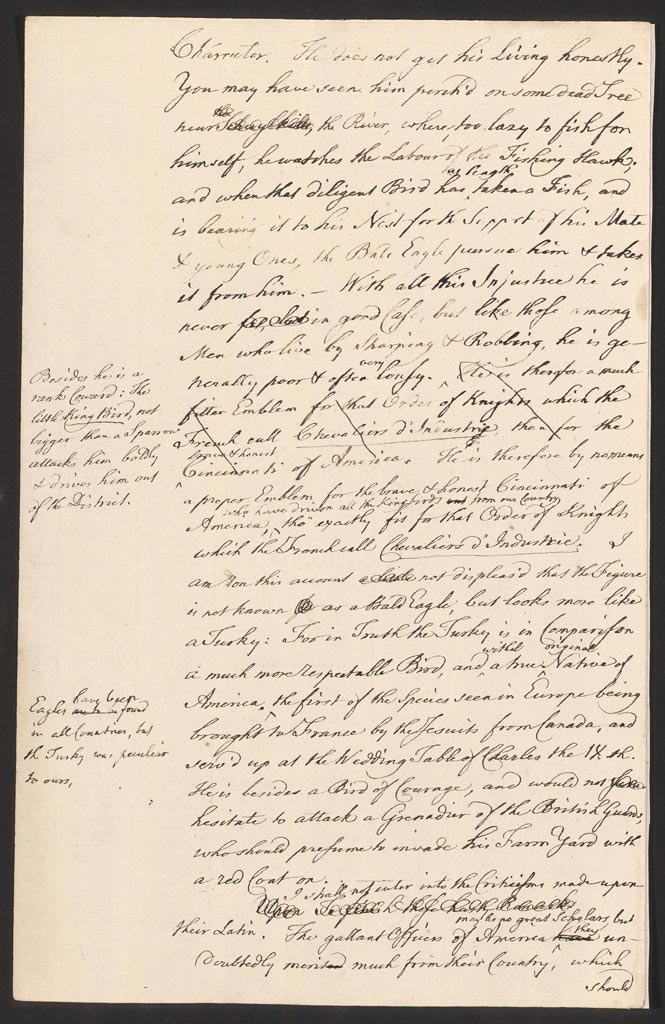 Character. He does not get his Living honestly.
You may have seen him perch'd on some dead Tree
near the Schuylkill, the River, where, too lazy to fish for
himself, he watches the Labour of the Fishing Hawk;
and when that diligent Bird has at length taken a Fish, and
is bearing it to his Nest for the Support of his Mate
& young Ones, the Bald Eagle pursues him & takes
it from him. — With all this Injustice he is
never in good Case, but like those among
Men who live by Sharping & Robbing, he is ge-
nerally poor & often very lousy. He is therefore a much
fitter Emblem for that Order of Knights which the
French call Chevaliers d'Industrie, than for the
brave & honest
Cincinnati of America. He is therefore by no means
a proper Emblem for the brave & honest Cincinnati of
who have driven all the Kingbirds from our Country
America, tho' exactly fit for that Order of Knights
which the French call Chevaliers d'Industrie. I
am on this account not displeas'd that the Figure
is not known as a Bald Eagle, but looks more like
a Turky: For in Truth the Turky is in Comparison
a much more respectable Bird, and withal a true original Native of
America, the first of the Species seen in Europe being
brought to France by the Jesuits from Canada, and
serv'd up at the Wedding Table of Charles the
He is besides a Bird of Courage, and would not
hesitate to attack a Grenadier of the British Guards,
who should presume to invade his Farm Yard with
a red Coat on.
I shall not enter into the Criticisms made upon
their Latin. The gallant Officers of America may be no great Scholars, but they un-
doubtedly merit much from their Country, which
should
Besides he is a
rank Coward: The
little King Bird, not
bigger than a Sparrow
attacks him boldly
& drives him out
of the District.
Eagles have been found
in all Countries, but
the Turky was peculiar
to ours,